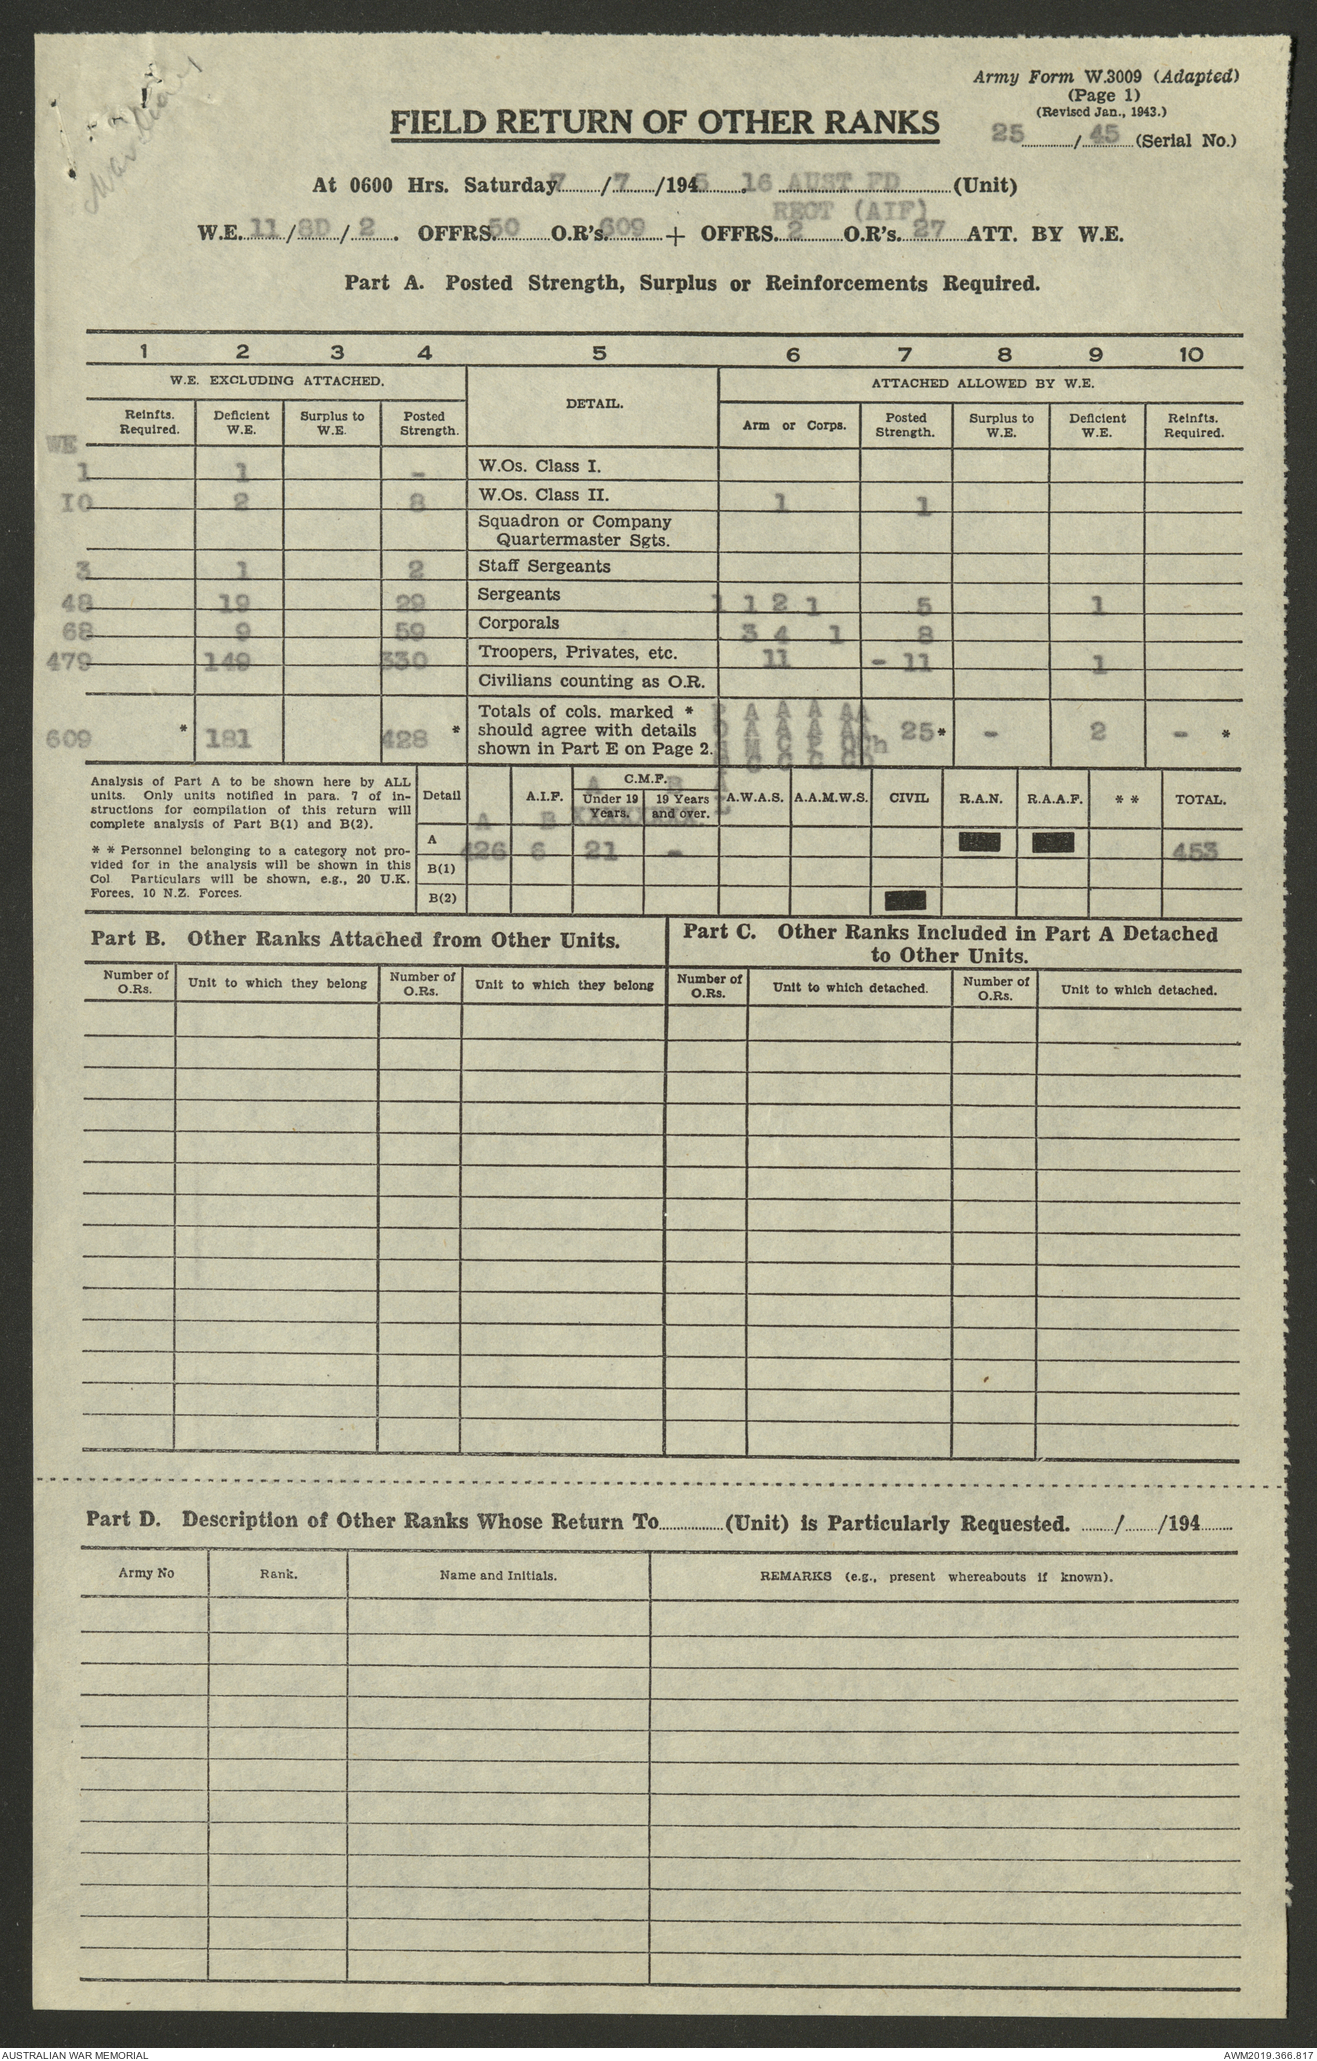 Army Form W.3009 (Adapted)
(Page 1)
(Revised Jan., 1943.)
25/45 (Serial No.)
FIELD RETURN OF OTHER RANKS
At 0600 Hrs. Saturday 7/7/1945. 16 AUST FD (Unit)
REGT (AIF)
W.E. 11/8D/2. OFFRS. 50 O.R's. 609 + OFFRS. 2 O.R's. 27 ATT. BY W.E.
Part A. Posted Strength, Surplus or Reinforcements Required.
1 2 3 4 5 6 7 8 9 10
W.E. EXCLUDING ATTACHED. DETAIL. ATTACHED ALLOWED BY W.E.
Reinfts. Required. Deficient W.E. Surplus to W.E. Posted Strength. Arm or Corps. Posted Strength. Surplus to W.E. Deficient W.E. Reinfts. Required.
WE
1 1 - W.Os. Class I.
10 2 8 W.Os. Class II. 1 1
Squadron or Company
Quartermaster Sgts.
3 1 2 Staff Sergeants
48 19 29 Sergeants 1 1 2 1 5 1
68 9 59 Corporals 3 4 1 8
479 149 330 Troopers, Privates, etc. 11 - 11 1
Civilians counting as O.R.
Totals of cols. marked * A A A AA
609 * 181 428 * should agree with details A A A AA 25* - 2 - *
shown in Part E on Page 2.
Analysis of Part A to be shown here by ALL
units. Only units notified in para. 7 of in-
structions for compilation of this return will
complete analysis of Part B(1) and B(2).
* * Personnel belonging to a category not pro-
vided for in the analysis will be shown in this
Col Particulars will be shown, e.g., 20 U.K.
Forces, 10 N.Z. Forces.
Detail A.I.F. C.M.F. A B Under 19 Years. 19 Years and over. A.W.A.S. A.A.M.W.S. CIVIL R.A.N. R.A.A.F. * * TOTAL.
A B XXXXXXXX
A 426 6 21 - 453
B(1)
B(2)
Part B. Other Ranks Attached from Other Units.
Part C. Other Ranks Included in Part A Detached
to Other Units.
Number of O.Rs. Unit to which they belong Number of O.Rs. Unit to which they belong Number of O.Rs. Unit to which detached. Number of O.Rs. Unit to which detached.
Part D. Description of Other Ranks Whose Return To (Unit) is Particularly Requested. / /194
Army No Rank. Name and Initials. REMARKS (e.g., present whereabouts if known).
AUSTRALIAN WAR MEMORIAL
AWM2019.366.817